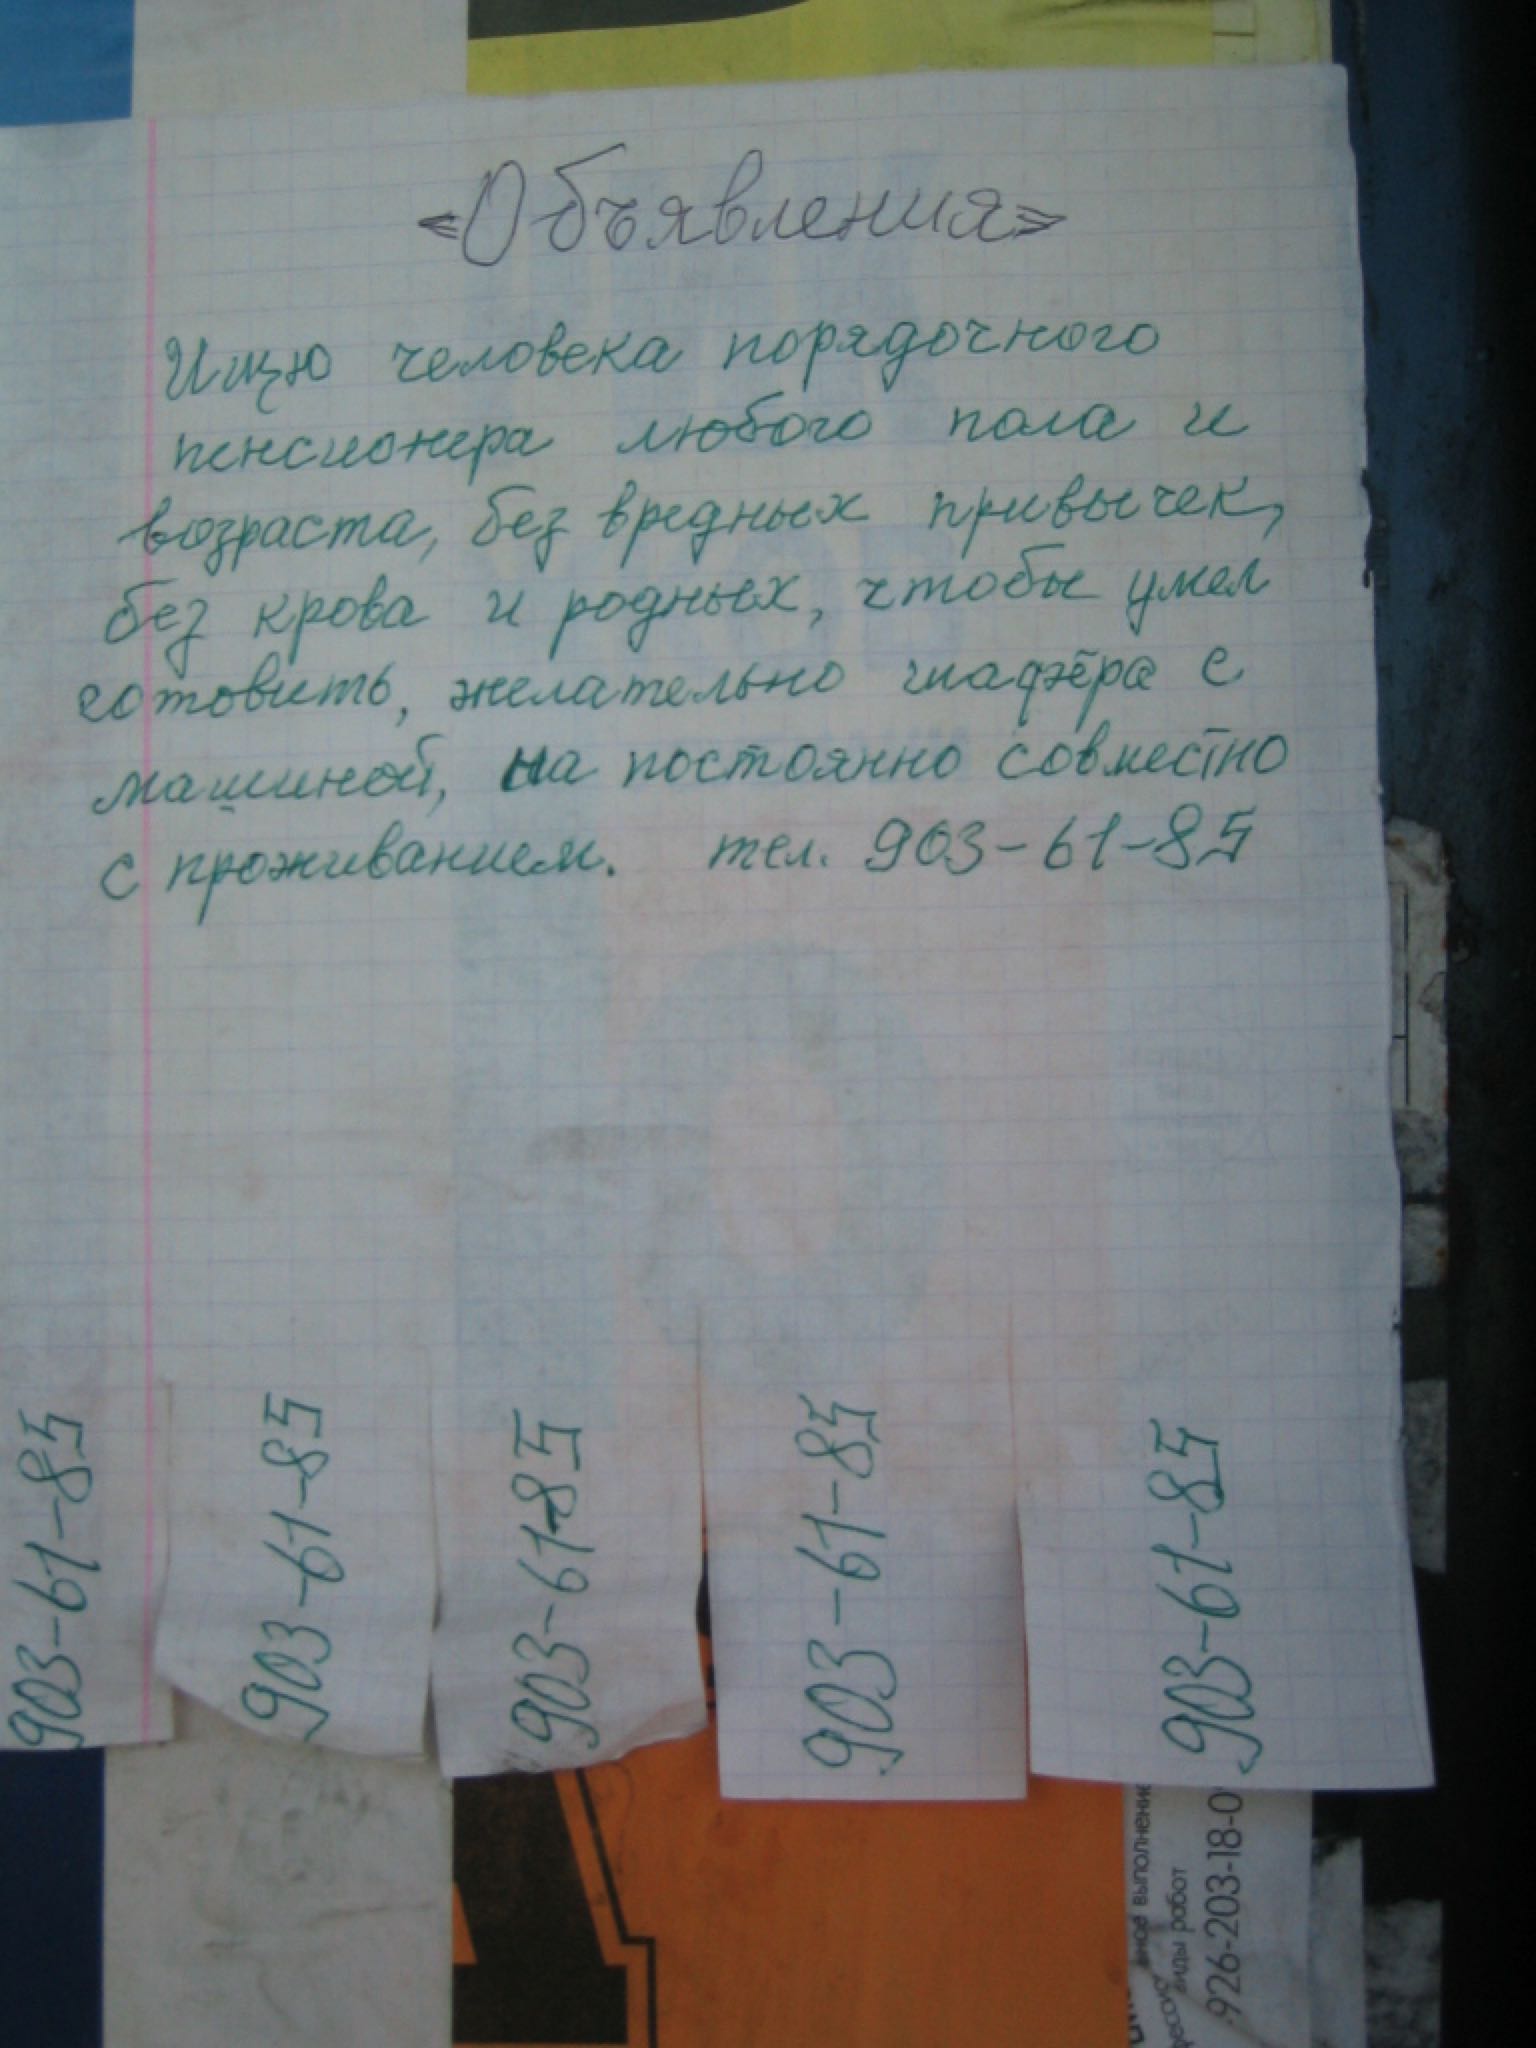 «Объявления»
Ищю человека порядочного
пенсионера любого пола и
возраста, без вредных привычек,
без крова и родных, чтобы умел
готовить, желательно шафёра с
машиной, на постоянно совместно
с проживанием. тел. 903-61-85
903-61-85
903-61-85
903-61-85
903-61-85
903-61-85
виды работ
926-203-18-0